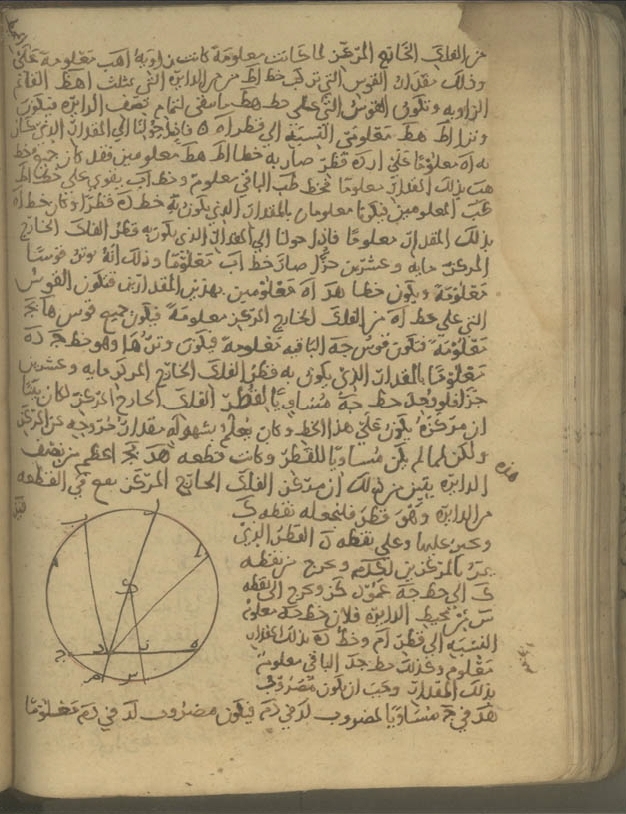 من الفلك الخارج المركز لما كانت معلومة كانت زاوية اهب معلومة على
وذلك مقدار القوس التي على خط اط من الدايرة التي بمثلث اهط القائم
الزاوية وتكون القوس التي على خط هط ما يبقى لتمام نصف الدايرة فيكون
وترا اط هط معلومي النسبة الى قطر اه فاذا حولنا الى المقدار الذي كان
به اه معلوما على ان ده قطر صار به خطا اط هط معلومين فقد كان جميع خط
هب بذلك المقدار معلوما فخط طب الباقي معلوم وخط اب يقوى على خطي اط
طب المعلومين فيكونا معلومان بالمقدار الذي يكون به خط ده قطرا وكان خط اه
بذلك المقدار معلوما فاذا حولنا الى المقدار الذي يكون به قطر الفلك الخارج
المركز مايه وعشرين جزا صار خط اب معلوما وذلك انه يوتر قوسا
معلومة ويكون خطا هد اه معلومين بهذين المقدارين فتكون القوس
التي على خط اه من الفلك الخارج المركز معلومة فيكون جميع قوس هابج
معلومة فتكون قوس جه الباقية معلومة فيكون وترها وهو خط جده
معلوما بالمقدار الذي يكون به قطر الفلك الخارج المركز مايه وعشرين
جزا فلو نجد خط جه مساويا لقطر الفلك الخارج المركز لكان بينا
ان مركزه يكون على هذا الخط وكان يعلم بسهولة مقدار خروجه عن المركز
ولكن لما لم يكن مساويا للقطر وكانت قطعه هابج اعظم من نصف
هذه
الدايرة يتبين من ذلك ان مركز الفلك الخارج المركز يقع في القطعه
من الدايرة وهو قطر فلنجعله نقطه ك
ونجيز عليها وعلى نقطه د القطر الذي
يمر بالمركزين لكدم ونخرج من نقطه
ك الى خط جه عمود كن ونخرج الى نقطه
س من محيط الدايرة فلان خط جه معلوم
النسبه الى قطر لم وخط ده بذلك المقدار
معلوم وكذلك خط جد الباقي معلوم
بذلك المقدار وجب ان يكون مضروب
هد في دج مساويا لمضروب لد في دم فيكون مضروب لد في دم معلوما